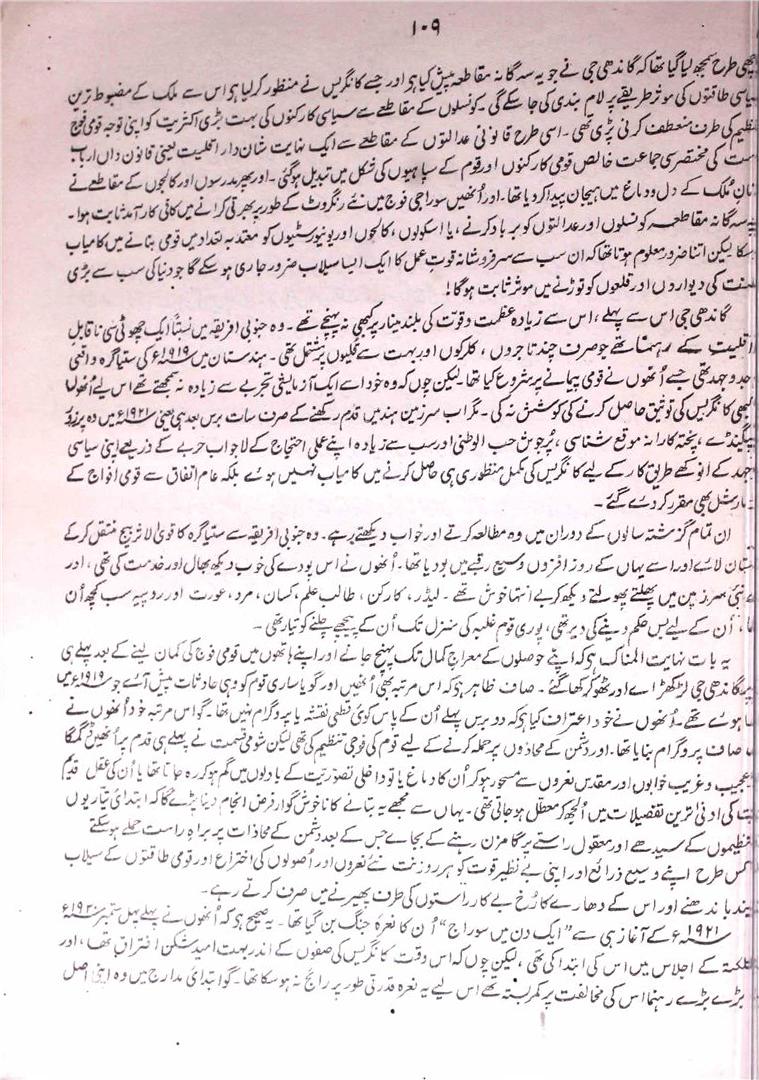 ۱۰۹
چھی طرح سمجھ لیا گیا تھا کہ گاندھی جی نے جو یہ سہ گانہ مقاطعہ پیش کیا ہو اور جسے کانگریس نے منظور کر لیا ہو اس سے ملک کے مضبوط ترین
یاسی طاقتوں کی موثر طریقے پر لام بندی کی جا سکے گی۔ کونسلوں کے مقاطعے سے سیاسی کارکنوں کی بہت بڑی اکثریت کو اپنی توجہ قومی فوج
نظیم کی طرف منعطف کرنی پڑی تھی۔ اسی طرح قانونی عدالتوں کے مقاطعے سے ایک نہایت شان دار اقلیت یعنی قانون داں ارباب
ست کی مختصر سی جماعت خالص قومی کارکنوں اور قوم کے سپاہیوں کی شکل میں تبدیل ہو گئی۔ اور پھر مدرسوں اور کالجوں کے مقاطعے نے
نانِ مُلک کے دل و دماغ میں ہیجان پیدا کر دیا تھا۔ اور اُنھیں سوراجی فوج میں نئے رنگروٹ کے طور پر بھرتی کرانے میں کافی کار آمد ثابت ہوا۔
یہ سہ گانہ مقاطعہ کونسلوں اور عدالتوں کو برباد کرنے، یا اسکولوں، کالجوں اور یونیورسٹیوں کو معتد بہ تعداد میں قومی بنانے میں کامیاب
سکا لیکن اتنا ضرور معلوم ہوتا تھا کہ ان سب سے سرفروشانہ قوتِ عمل کا ایک ایسا سیلاب ضرور جاری ہو سکے گا جو دنیا کی سب سے بڑی
لطنت کی دیواروں اور قلعوں کو توڑنے میں موثر ثابت ہو گا!
گاندھی جی اس سے پہلے، اس سے زیادہ عظمت و قوّت کی بلند مینار پر کبھی نہ پہنچے تھے۔ وہ جنوبی افریقہ میں نسبتاً ایک چھوٹی سی ناقابل
اقلیت کے رہنما تھے جو صرف چند تاجروں، کلرکوں اور بہت سے قلیوں پر مشتمل تھی۔ ہندستان میں ۱۹۱۹ء کی ستیا گرہ واقعی
جد و جہد تھی جسے اُنھوں نے قومی پیمانے پر شروع کیا تھا۔ لیکن چوں کہ وہ خود اسے ایک آزمائشی تجربے سے زیادہ نہ سمجھتے تھے اس لیے اُنھوں
کبھی کانگریس کی توثیق حاصل کرنے کی کوشش نہ کی۔ مگر اب سرزمینِ ہند میں قدم رکھنے کے صرف سات برس بعد ہی یعنی ۱۹۲۱ء میں وہ پر زور
پگینڈے، پختہ کارانہ موقع شناسی، پُرجوش حب الوطنی اور سب سے زیادہ اپنے عملی احتجاج کے لاجواب حربے کے ذریعے اپنی سیاسی
جہد کے انوکھے طریقِ کار کے لیے کانگریس کی مکمل منظوری ہی حاصل کرنے میں کامیاب نہیں ہوے بلکہ عام اتفاق سے قومی افواج کے
مارشل بھی مقرر کر دے گئے۔
ان تمام گزشتہ سالوں کے دوران میں وہ مطالعہ کرتے اور خواب دیکھتے رہے۔ وہ جنوبی افریقہ سے ستیا گرہ کا قوی الاثر بیج منتقل کر کے
ستان لائے اور اسے یہاں کے روز افزوں وسیع رقبے میں بو دیا تھا۔ اُنھوں نے اس پودے کی خوب دیکھ بھال اور خدمت کی تھی، اور
نئی سرزمین میں پھلتے پھولتے دیکھ کر بے انتہا خوش تھے۔ لیڈر، کارکن، طالب علم، کسان، مرد، عورت اور روپیہ سب کچھ اُن
، اُن کے لیے بس حکم دینے کی دیر تھی، پوری قوم غلبہ کی منزل تک اُن کے پیچھے چلنے کو تیار تھی۔
یہ بات نہایت المناک ہو کہ اپنے حوصلوں کے معراجِ کمال تک پہنچ جانے اور اپنے ہاتھوں میں قومی فوج کی کمان لینے کے بعد پہلے ہی
پر گاندھی جی لڑکھڑائے اور ٹھوکر کھا گئے۔ صاف ظاہر ہو کہ اس مرتبہ بھی اُنھیں اور گویا ساری قوم کو وہی حادثات پیش آئے جو ۱۹۱۹ء میں
ہوے تھے۔ اُنھوں نے خود اعتراف کیا ہو کہ دو برس پہلے اُن کے پاس کوئی قطعی نقشہ یا پروگرام نہیں تھا۔ گو اس مرتبہ خود اُنھوں نے
صاف پروگرام بنایا تھا۔ اور دشمن کے محاذوں پر حملہ کرنے کے لیے قوم کی فوجی تنظیم کی تھی لیکن شومی قسمت نے پہلے ہی قدم پر اُنھیں ڈگمگا
عجیب و غریب خوابوں اور مقدس نعروں سے مسحور ہو کر اُن کا دماغ یا تو داخلی تصوّریت کے بادلوں میں گم ہو کر رہ جاتا تھا یا اُن کی عقل قدیم
ت کی ادنیٰ ترین تفصیلات میں اُلجھ کر معطل ہو جاتی تھی۔ یہاں سے مجھے یہ بتانے کا ناخوش گوار فرض انجام دینا پڑے گا کہ ابتدائی تیاریوں
تنظیموں کے سیدھے اور معقول راستے پر گامزن رہنے کے بجاے جس کے بعد دشمن کے محاذات پر براہِ راست حملے ہو سکتے
کس طرح اپنے وسیع ذرائع اور اپنی بے نظیر قوت کو ہر روز نت نئے نعروں اور اُصولوں کی اختراع اور قومی طاقتوں کے سیلاب
بند باندھنے اور اس کے دھارے کا رُخ بے کار راستوں کی طرف پھیرنے میں صرف کرتے رہے۔
۱۹۲۱ء کے آغاز ہی سے ”ایک دن میں سوراج“ اُن کا نعرہ جنگ بن گیا تھا۔ یہ صحیح ہو کہ اُنھوں نے پہلے پہل ستمبر ۱۹۲۰ء
کلکتہ کے اجلاس میں اس کی ابتدا کی تھی، لیکن چوں کہ اس وقت کانگریس کی صفوں کے اندر بہت امید شکن افتراق تھا، اور
بڑے بڑے رہنما اس کی مخالفت پر کمر بستہ تھے اس لیے یہ نعرہ قدرتی طور پر رائج نہ ہو سکا تھا۔ گو ابتدائی مدارج میں وہ اپنی اصل